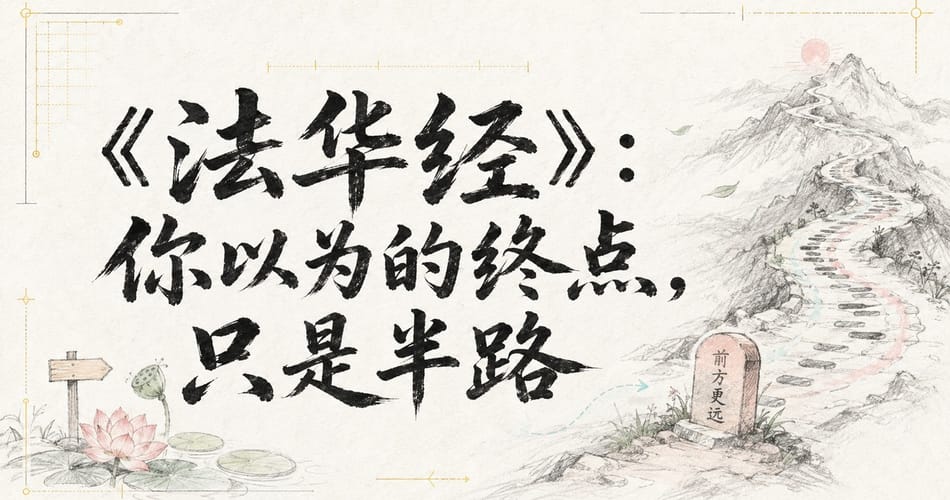 《法华经》：
你以为的终点，
只是半路
前方更远